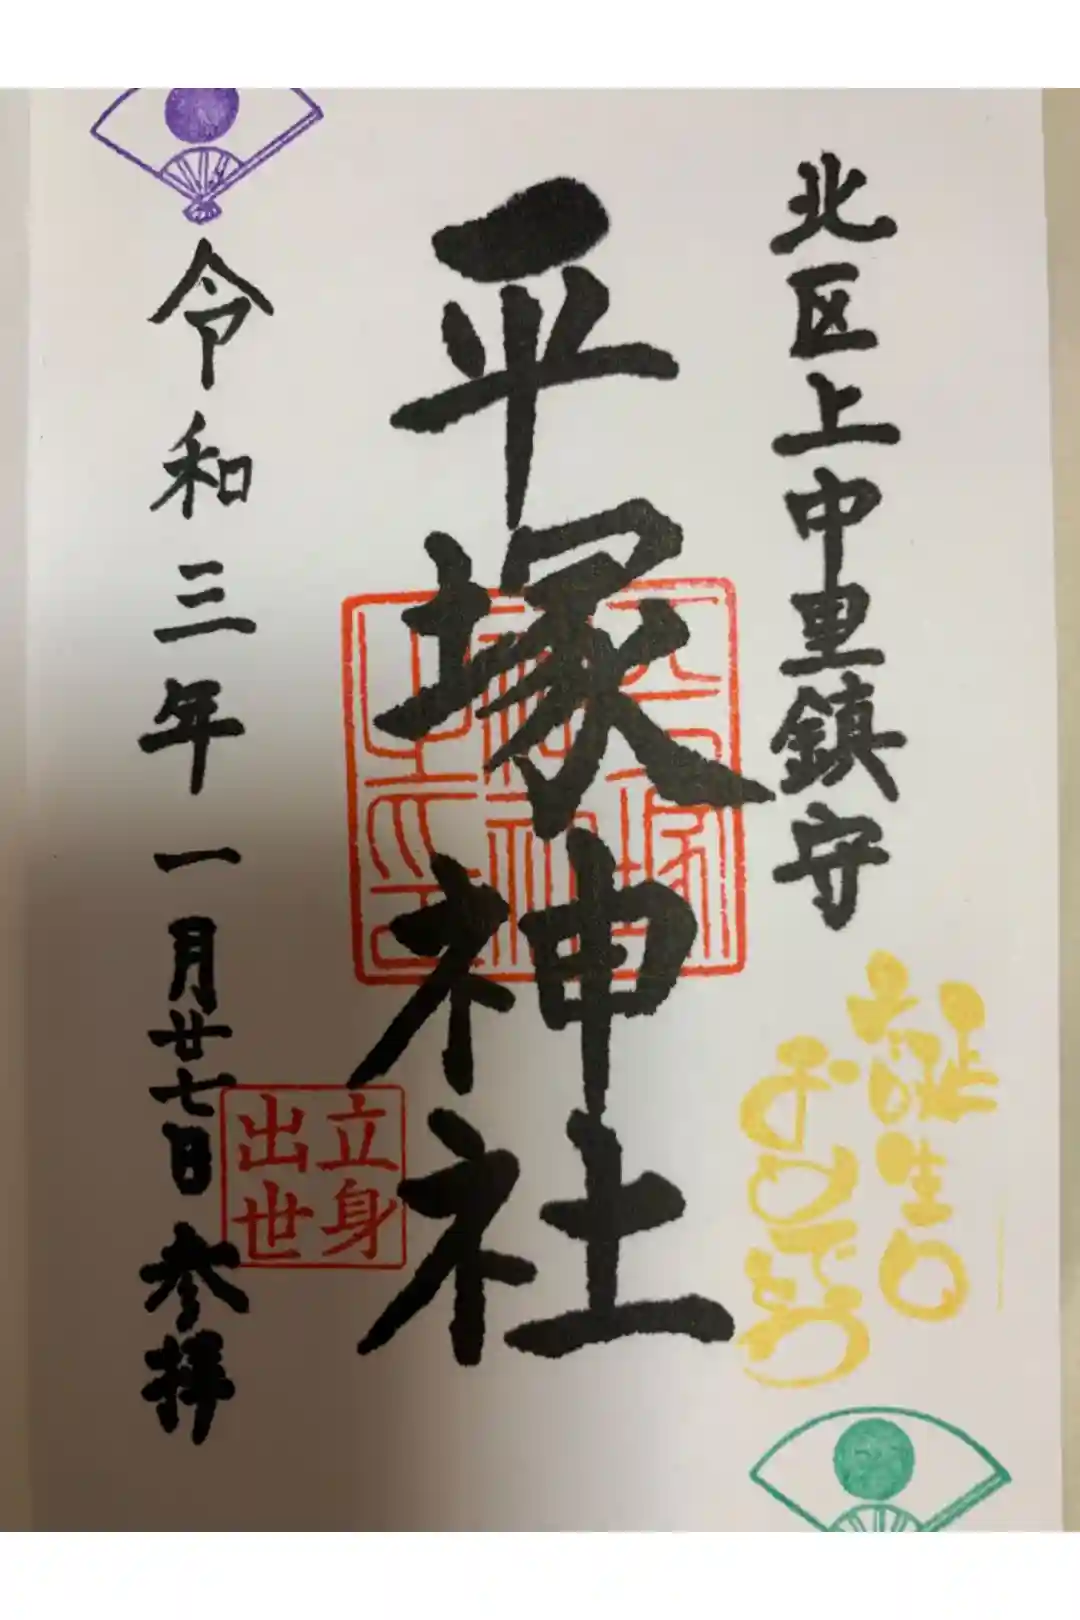 北区上中里鎮守
誕生日
おめでとう
平塚神社
立身
出世
令和三年一月廿七日参拝